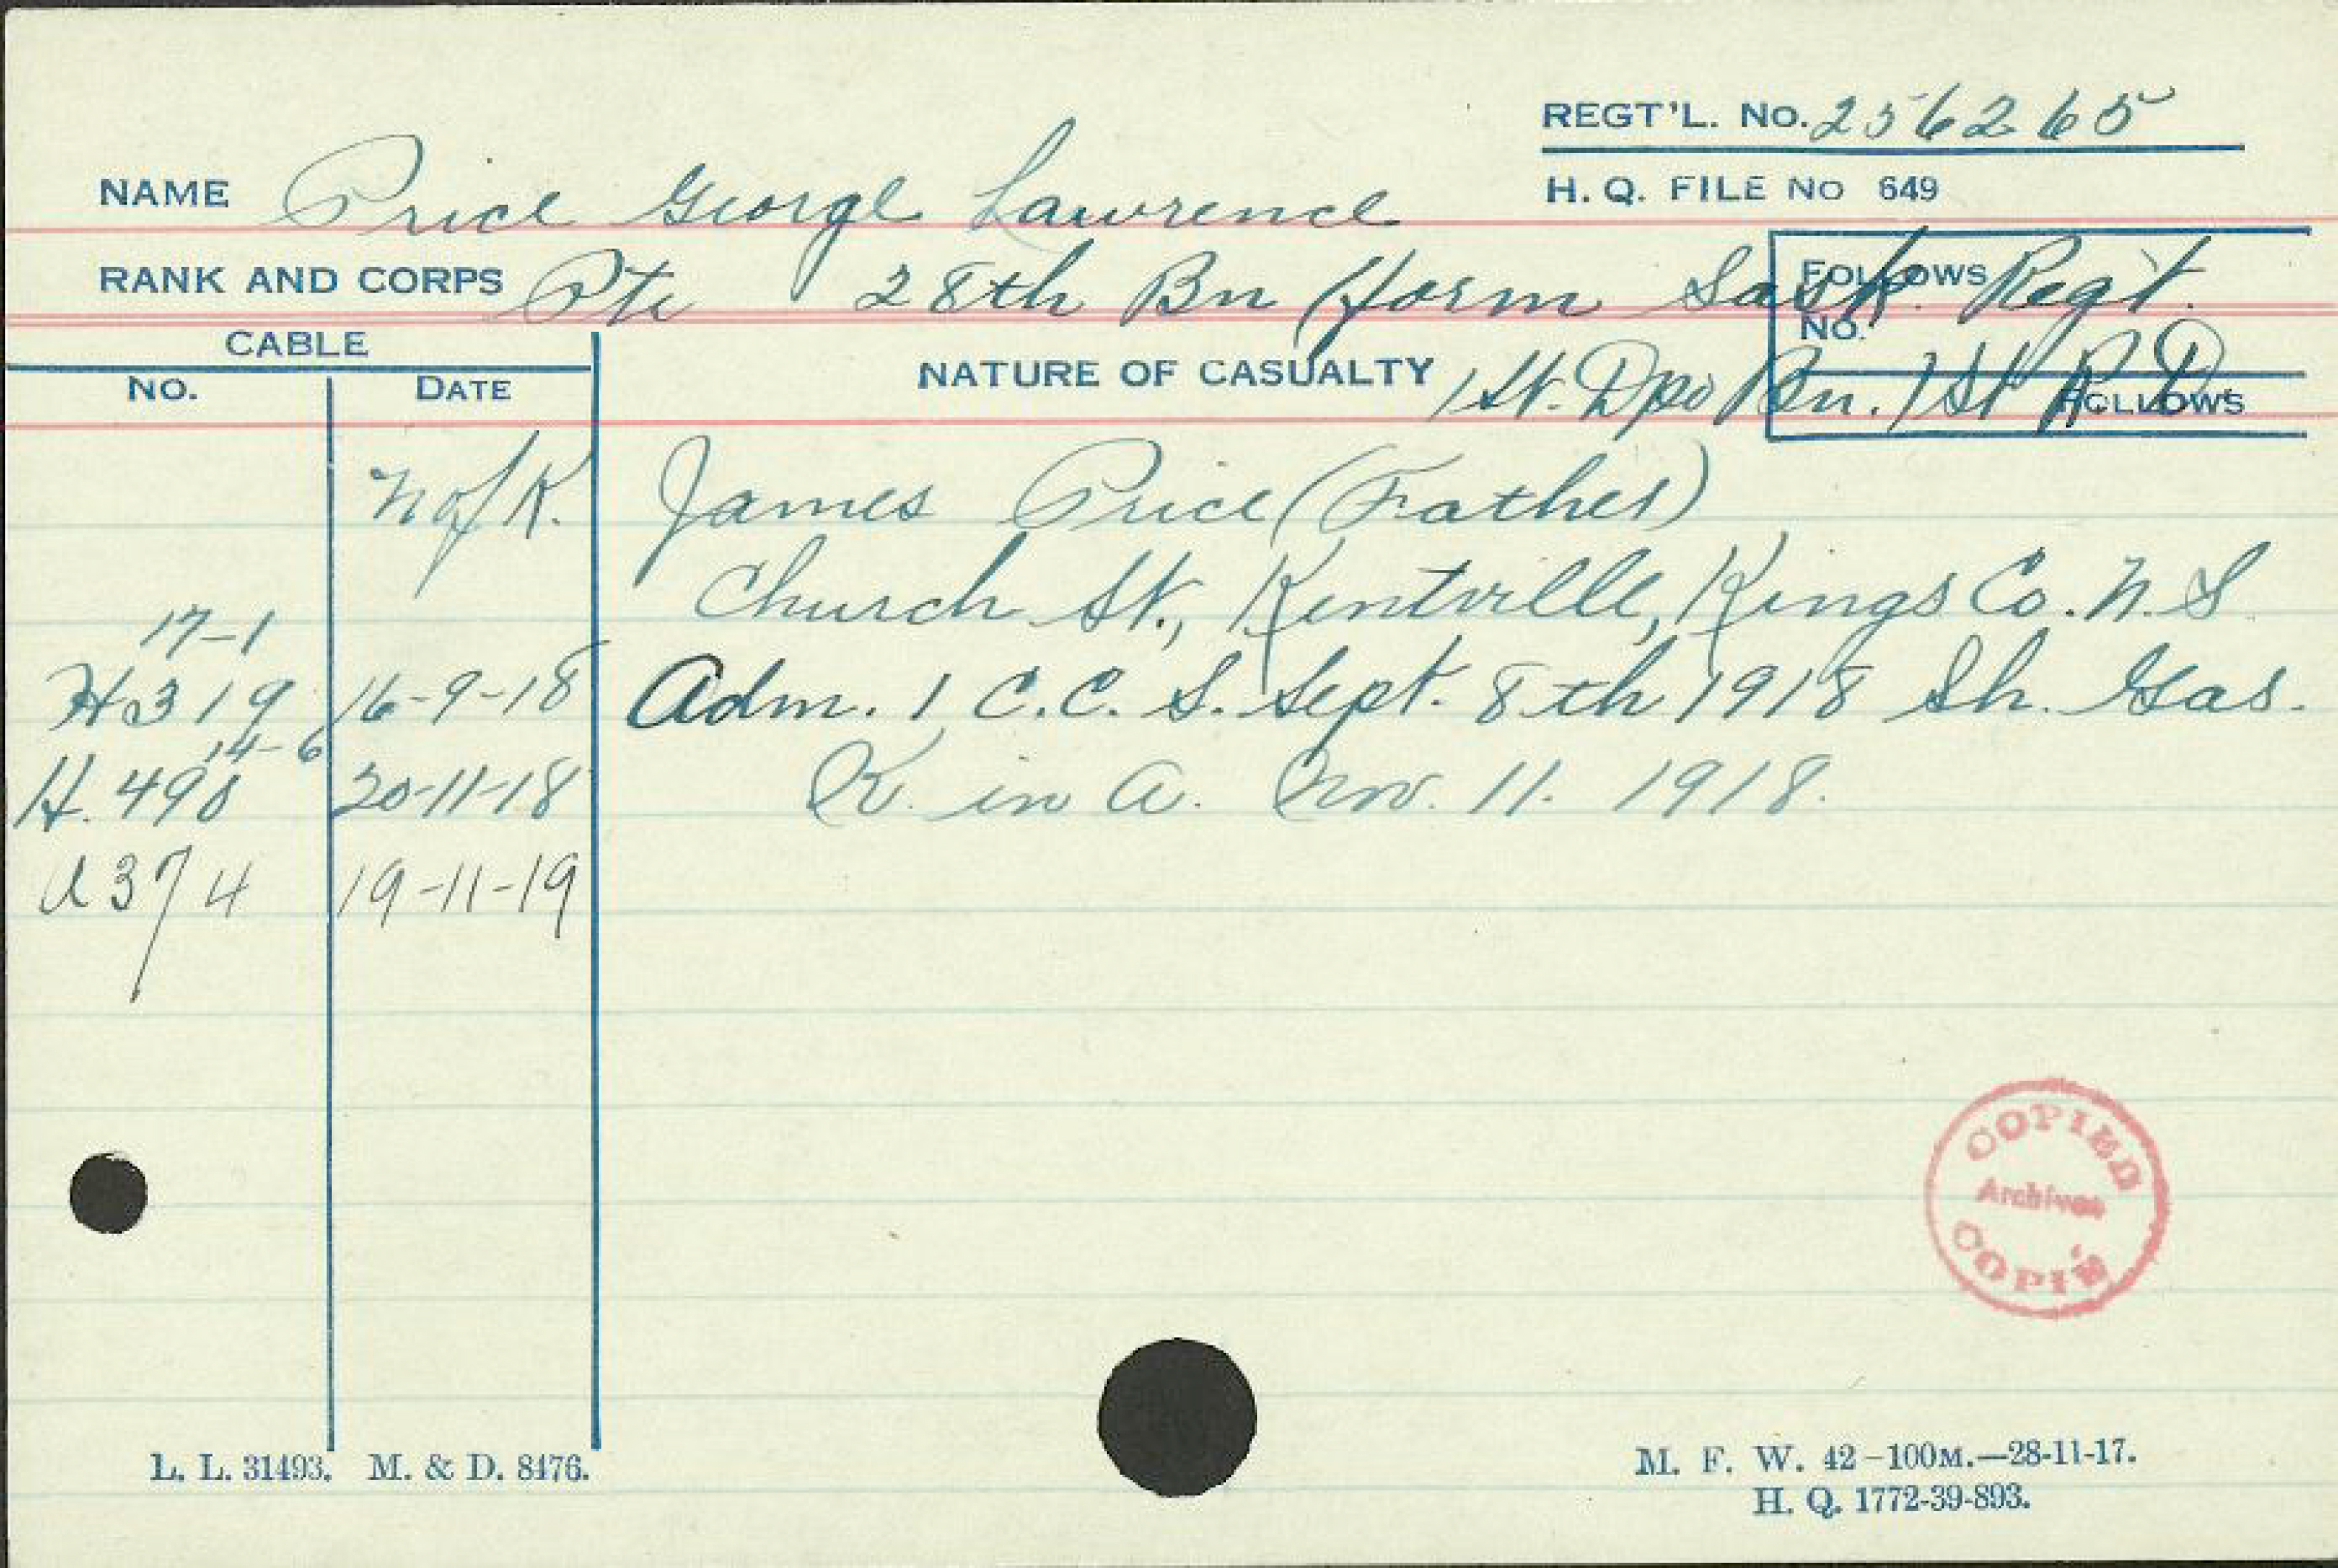 REGT'L. No. 256265
NAME Price George Lawrence
H. Q. FILE No 649
RANK AND CORPS Pte 28th Bn (form Sask. Regt.
FOLLOWS
NO.
CABLE
NATURE OF CASUALTY 1st. Dpo Bn. 1st R D
FOLLOWS
NO. DATE
N of K. James Price (Father)
Church St., Kentville, Kings Co. N.S
17-1
H319 16-9-18 Adm. 1 C.C.S. Sept. 8th 1918 Sh. Gas.
14-6
H.498 20-11-18 K. in A. Nov. 11. 1918.
A374 19-11-19
COPIED
Archives
COPIÉ
L. L. 31493. M. & D. 8476.
M. F. W. 42–100M.—28-11-17.
H. Q. 1772-39-893.